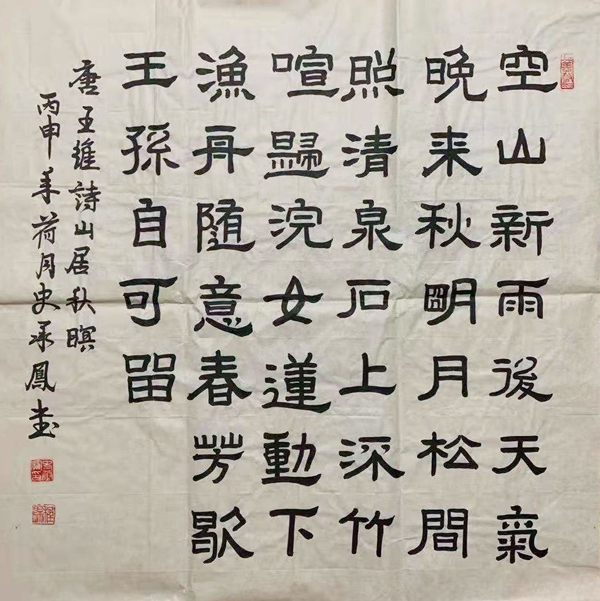 空山新雨後天氣
晚来秋朙月松間
照清泉石上深竹
喧歸浣女蓮動下
漁舟随意春芳歇
王孫自可留
唐王維詩山居秋暝
丙申年荷月史承鳳書